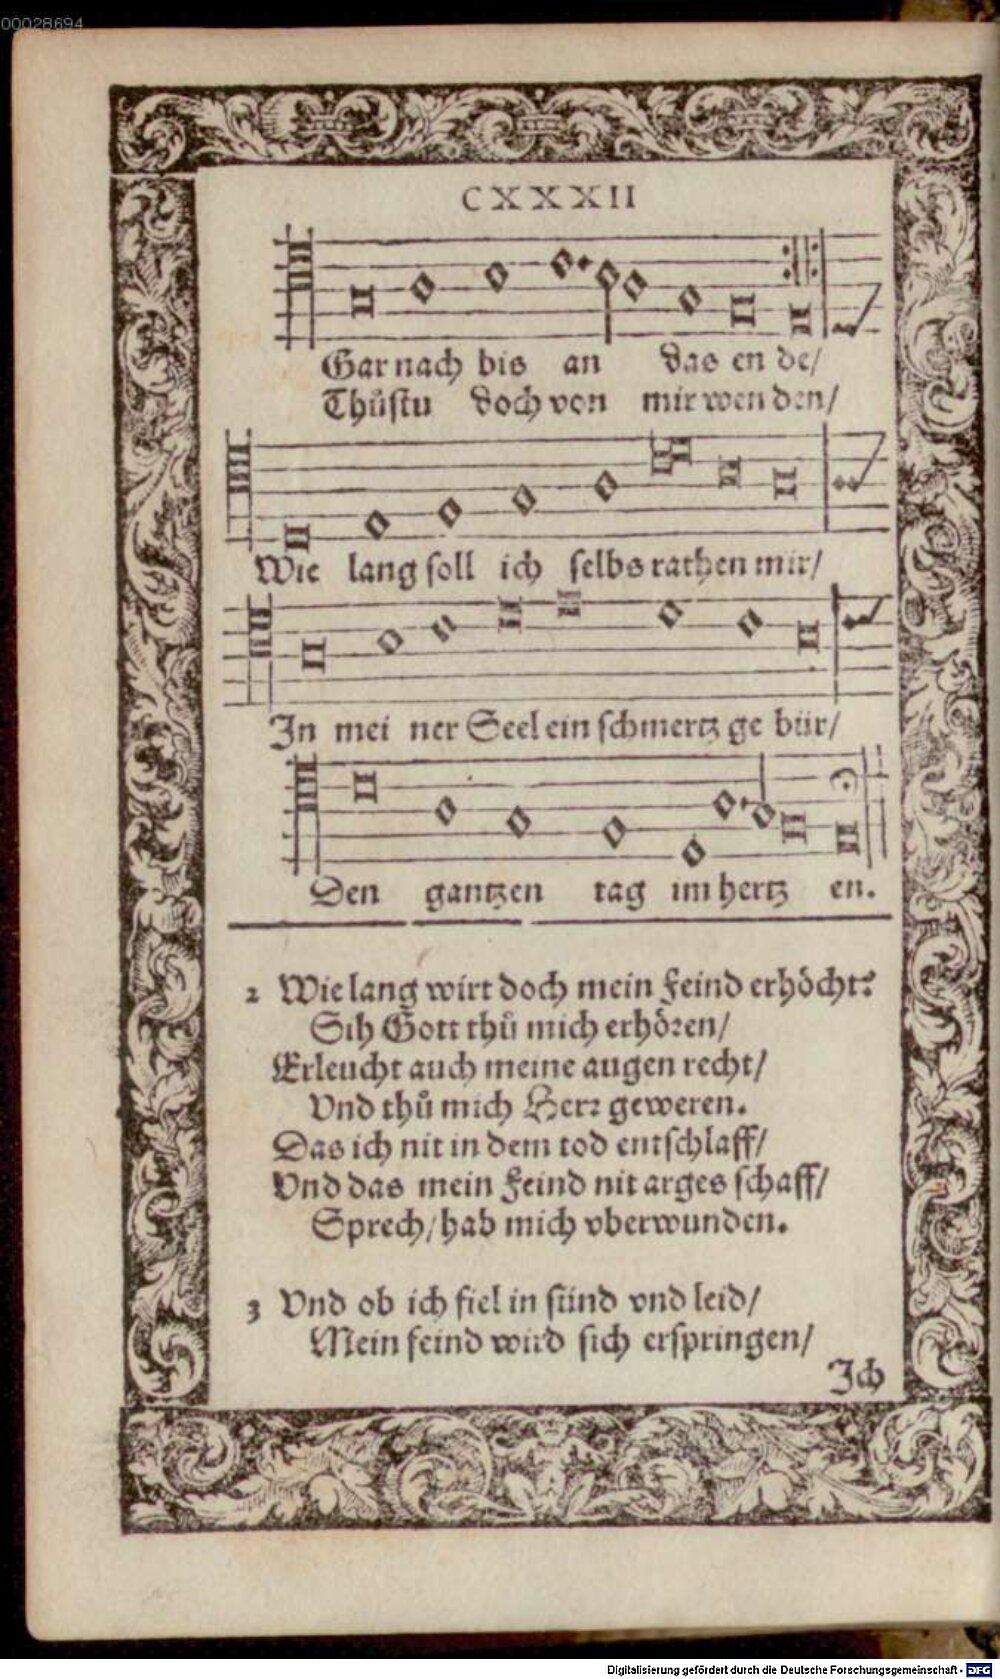 00028694
CXXXII
Gar nach bis an das en de/
Thůstu doch von mir wen den/
Wie lang soll ich selbs rathen mir/
In mei ner Seel ein schmertz ge bür/
Den gantzen tag im hertz en.
2 Wie lang wirt doch mein Feind erhöcht?
Sih Gott thů mich erhören/
Erleucht auch meine augen recht/
Vnd thů mich Herr geweren.
Das ich nit in dem tod entschlaff/
Vnd das mein Feind nit arges schaff/
Sprech/ hab mich vberwunden.
3 Vnd ob ich fiel in sünd vnd leid/
Mein feind wird sich erspringen/
Ich
Digitalisierung gefördert durch die Deutsche Forschungsgemeinschaft - DFG